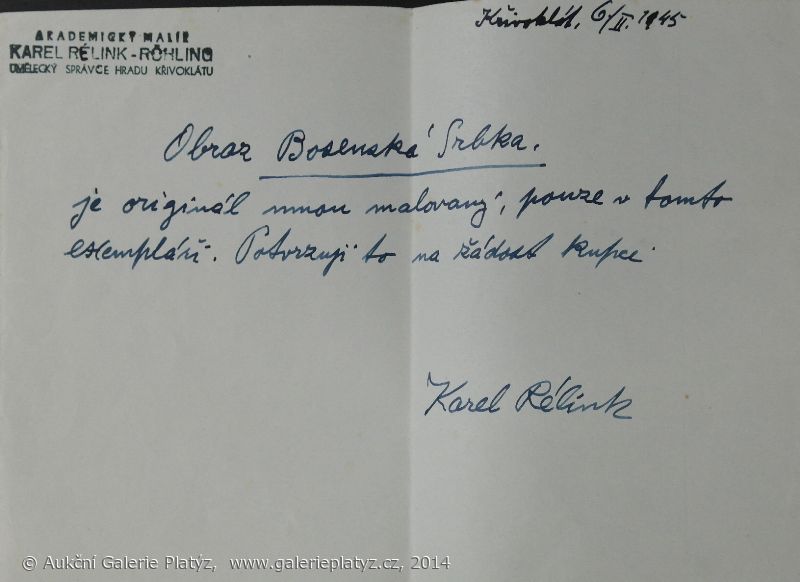 AKADEMICKÝ MALÍŘ
KAREL RÉLINK-RÖHLING
UMĚLECKÝ SPRÁVCE HRADU KŘIVOKLÁTU
Křivoklát, 6/II. 1945
Obraz Bosenská Srbka.
je originál mnou malovaný, pouze v tomto
exempláři. Potvrzuji to na žádost kupce
Karel Rélink
© Aukční Galerie Platýz, www.galerieplatyz.cz, 2014